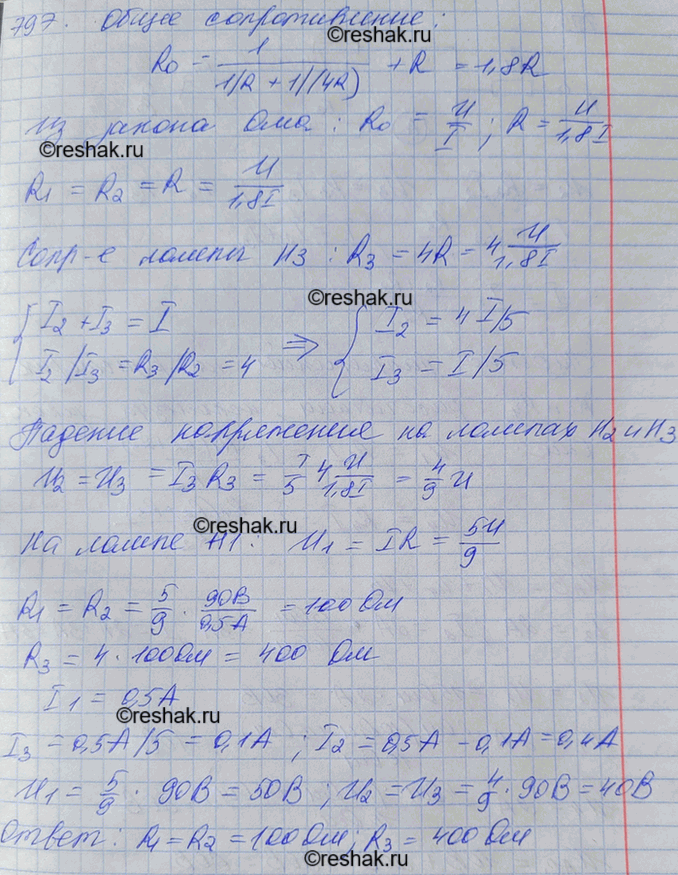 797. Общее сопротивление:
©reshak.ru
R0 = 1/(1/R + 1/(4R)) + R = 1,8R
Из закона Ома: R0 = U/I; R = U/1,8I
©reshak.ru
R1 = R2 = R = U/1,8I
Сопр-е лампы H3: R3 = 4R = 4 U/1,8I
©reshak.ru
{ I2 + I3 = I
I2/I3 = R3/R2 = 4 ⇒ { I2 = 4I/5
I3 = I/5
Падение напряжения на лампах H2 и H3
U2 = U3 = I3 R3 = I/5 4 U/1,8I = 4/9 U
©reshak.ru
На лампе H1: U1 = IR = 5U/9
R1 = R2 = 5/9 · 90В/0,5А = 100 Ом
R3 = 4 · 100 Ом = 400 Ом
I1 = 0,5А
©reshak.ru
I3 = 0,5А/5 = 0,1А; I2 = 0,5А - 0,1А = 0,4А
U1 = 5/9 · 90В = 50В; U2 = U3 = 4/9 · 90В = 40В
Ответ: R1 = R2 = 100 Ом; R3 = 400 Ом
©reshak.ru